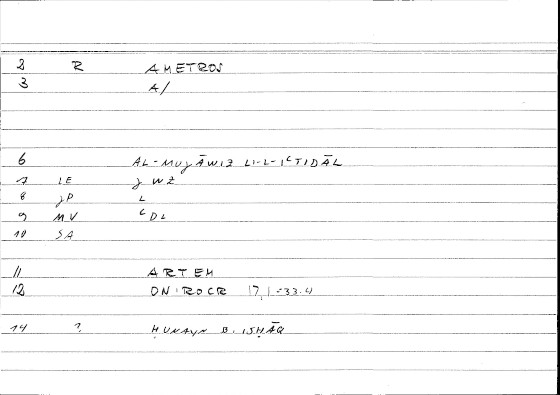 2 R AMETROS
3 A/
6 AL-MUJĀWIZ LI-L-IʿTIDĀL
7 LE J WZ
8 JP L
9 MV ʿDL
10 SA
11 ARTEM
12 ON:ROCR 17,1-33.4
14 ? ḤUNAYN B. ISḤĀQ